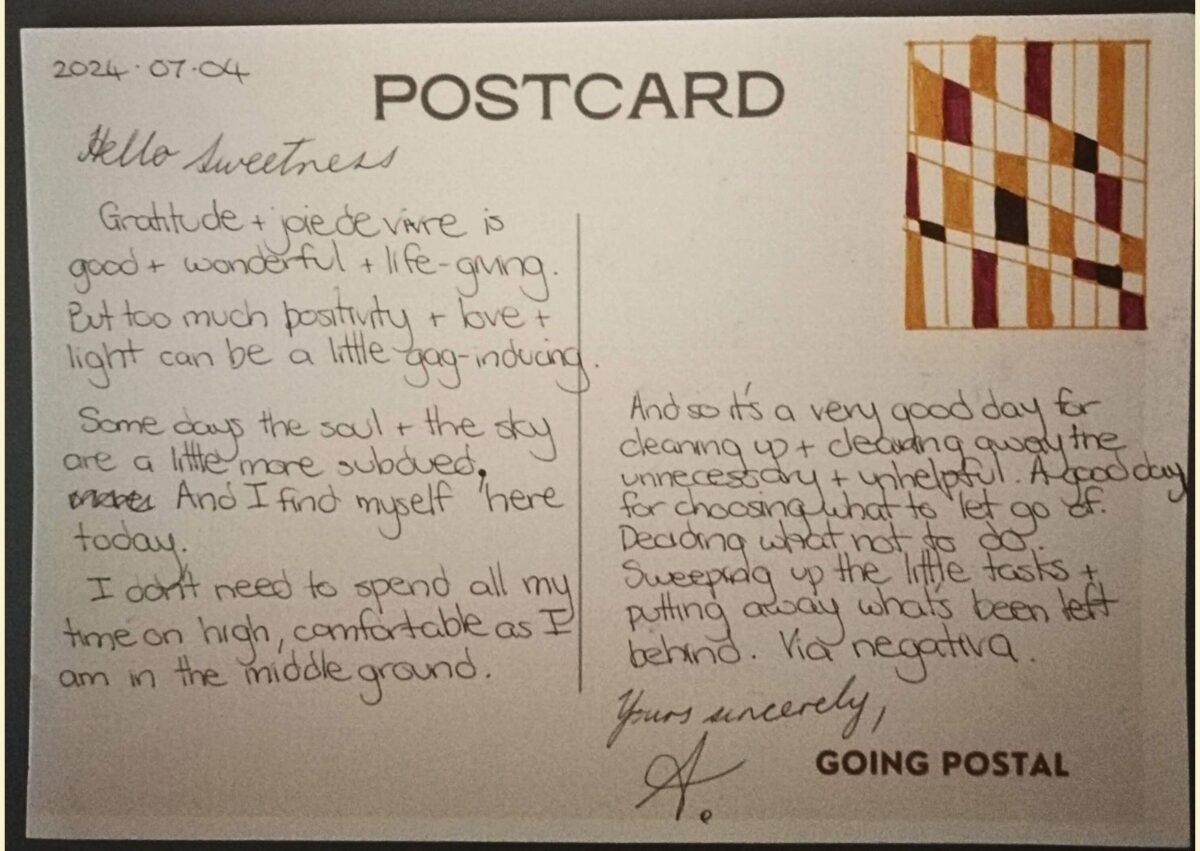 2024.07.04
POSTCARD
Hello Sweetness
Gratitude + joie de vivre is
good + wonderful + life-giving.
But too much positivity + love +
light can be a little gag-inducing.
Some days the soul + the sky
are a little more subdued.
And I find myself here
today.
I don't need to spend all my
time on high, comfortable as I
am in the middle ground.
And so it's a very good day for
cleaning up + clearing away the
unnecessary + unhelpful. A good day
for choosing what to let go of.
Deciding what not to do.
Sweeping up the little tasks +
putting away what's been left
behind. Via negativa.
Yours sincerely,
A.
GOING POSTAL